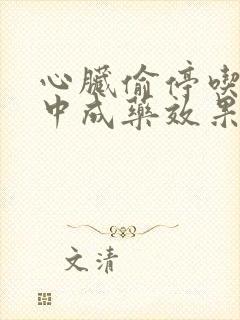 心臟偷停喫
中成藥效果
文清